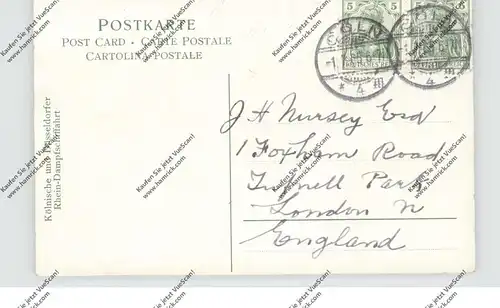 POSTKARTE
POST CARD - CARTE POSTALE
CARTOLINA POSTALE
5 5
CÖLN
4 m
Kölnische und Düsseldorfer
Rhein-Dampfschiffahrt
J H Nursey Esq
1 Foxham Road
Tufnell Park
London N
England
Kaufen Sie jetzt VueScan!
www.hamrick.com